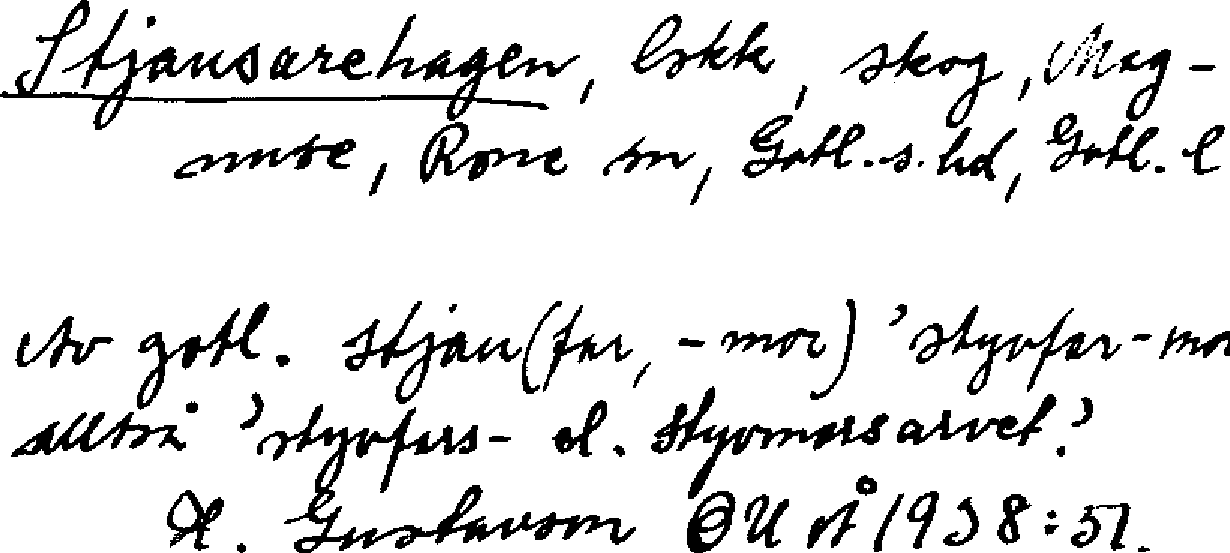 Stjausarehagen, lokk, skog, Mag-
nuse, Rone sn, Gotl. s. hd, Gotl. l
Av gotl. stjau(far, -mor) 'styvfar-mor
alltså 'styvfars- el. styvmorsarvet.'
H. Gustavson OUÅ 1938:51.